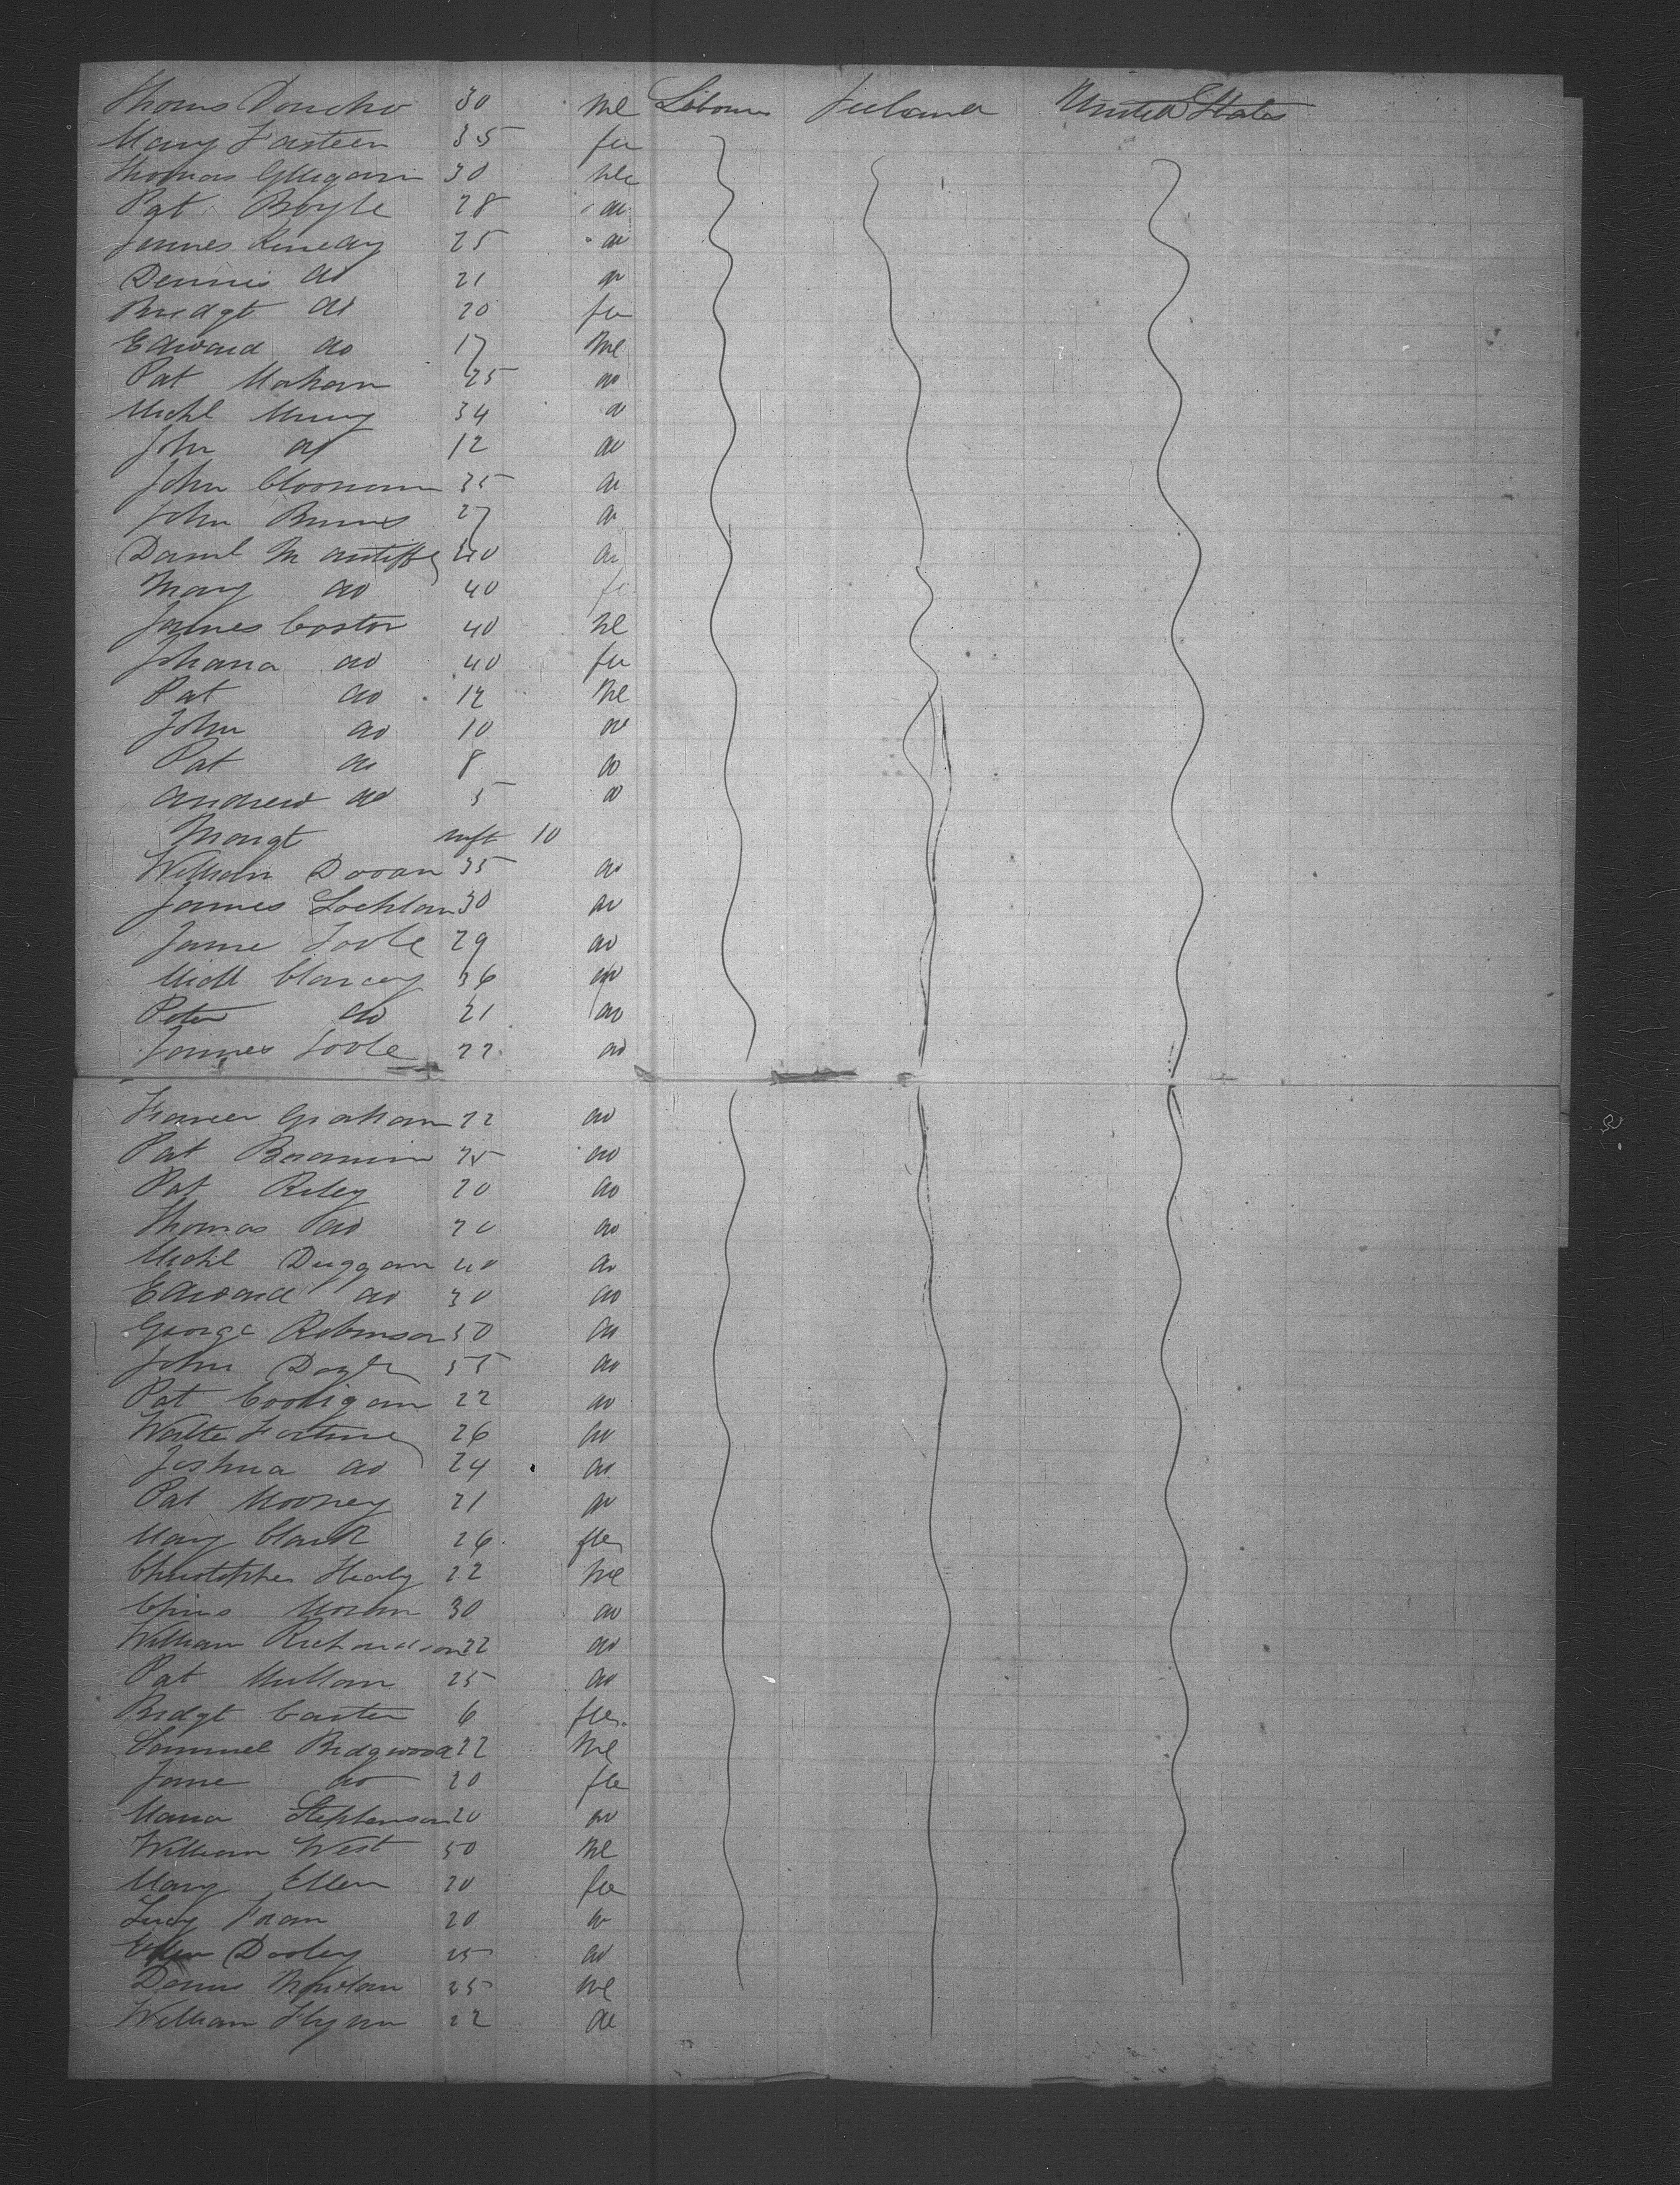 Thoms Donoho 30 Ml Labourer Ireland United States
Mary Fasteen 35 fe
Thomas Gilligan 30 Ml
Pat Boyle 28 do
James Kenedy 25 do
Dennis do 21 do
Bridgt do 20 fe
Edward do 17 Ml
Pat Mahan 25 do
Michl 34 do
John do 12 do
John Cloonan 35 do
John Burns 27 do
Daniel 40 do
Mary do 40 fe
James Coster 40 Ml
Johana do 40 fe
Pat do 12 Ml
John do 10 do
Pat do 8 do
Andrew do 5 do
Margt inft 10
William Doran 35 do
James Lochlan 30 do
Jame Toole 29 do
Michl Clancey 36 do
Peter do 21 do
James Toole 22 do
Graham 22 do
Pat 25 do
Pat Riley 20 do
Thomas do 20 do
Michl Duggan 40 do
Edward do 30 do
George Robinson 50 do
John Doyle 55 do
Pat Costigan 22 do
Walter Fortune 26 do
Joshua do 24 do
Pat Mooney 21 do
Mary Clark 26 fe
Christopher Healy 22 Ml
Moran 30 do
William Richardson 22 do
Pat Mullan 25 do
Bridgt Carter 6 fe
Samuel Bridgwood 22 Ml
Jane do 20 fe
Maria Stephenson 20 do
William West 50 Ml
Mary Ellen 20 fe
Lucy 20 do
Ellen Dooley 25 do
Dennis 25 Ml
William Flynn 22 do